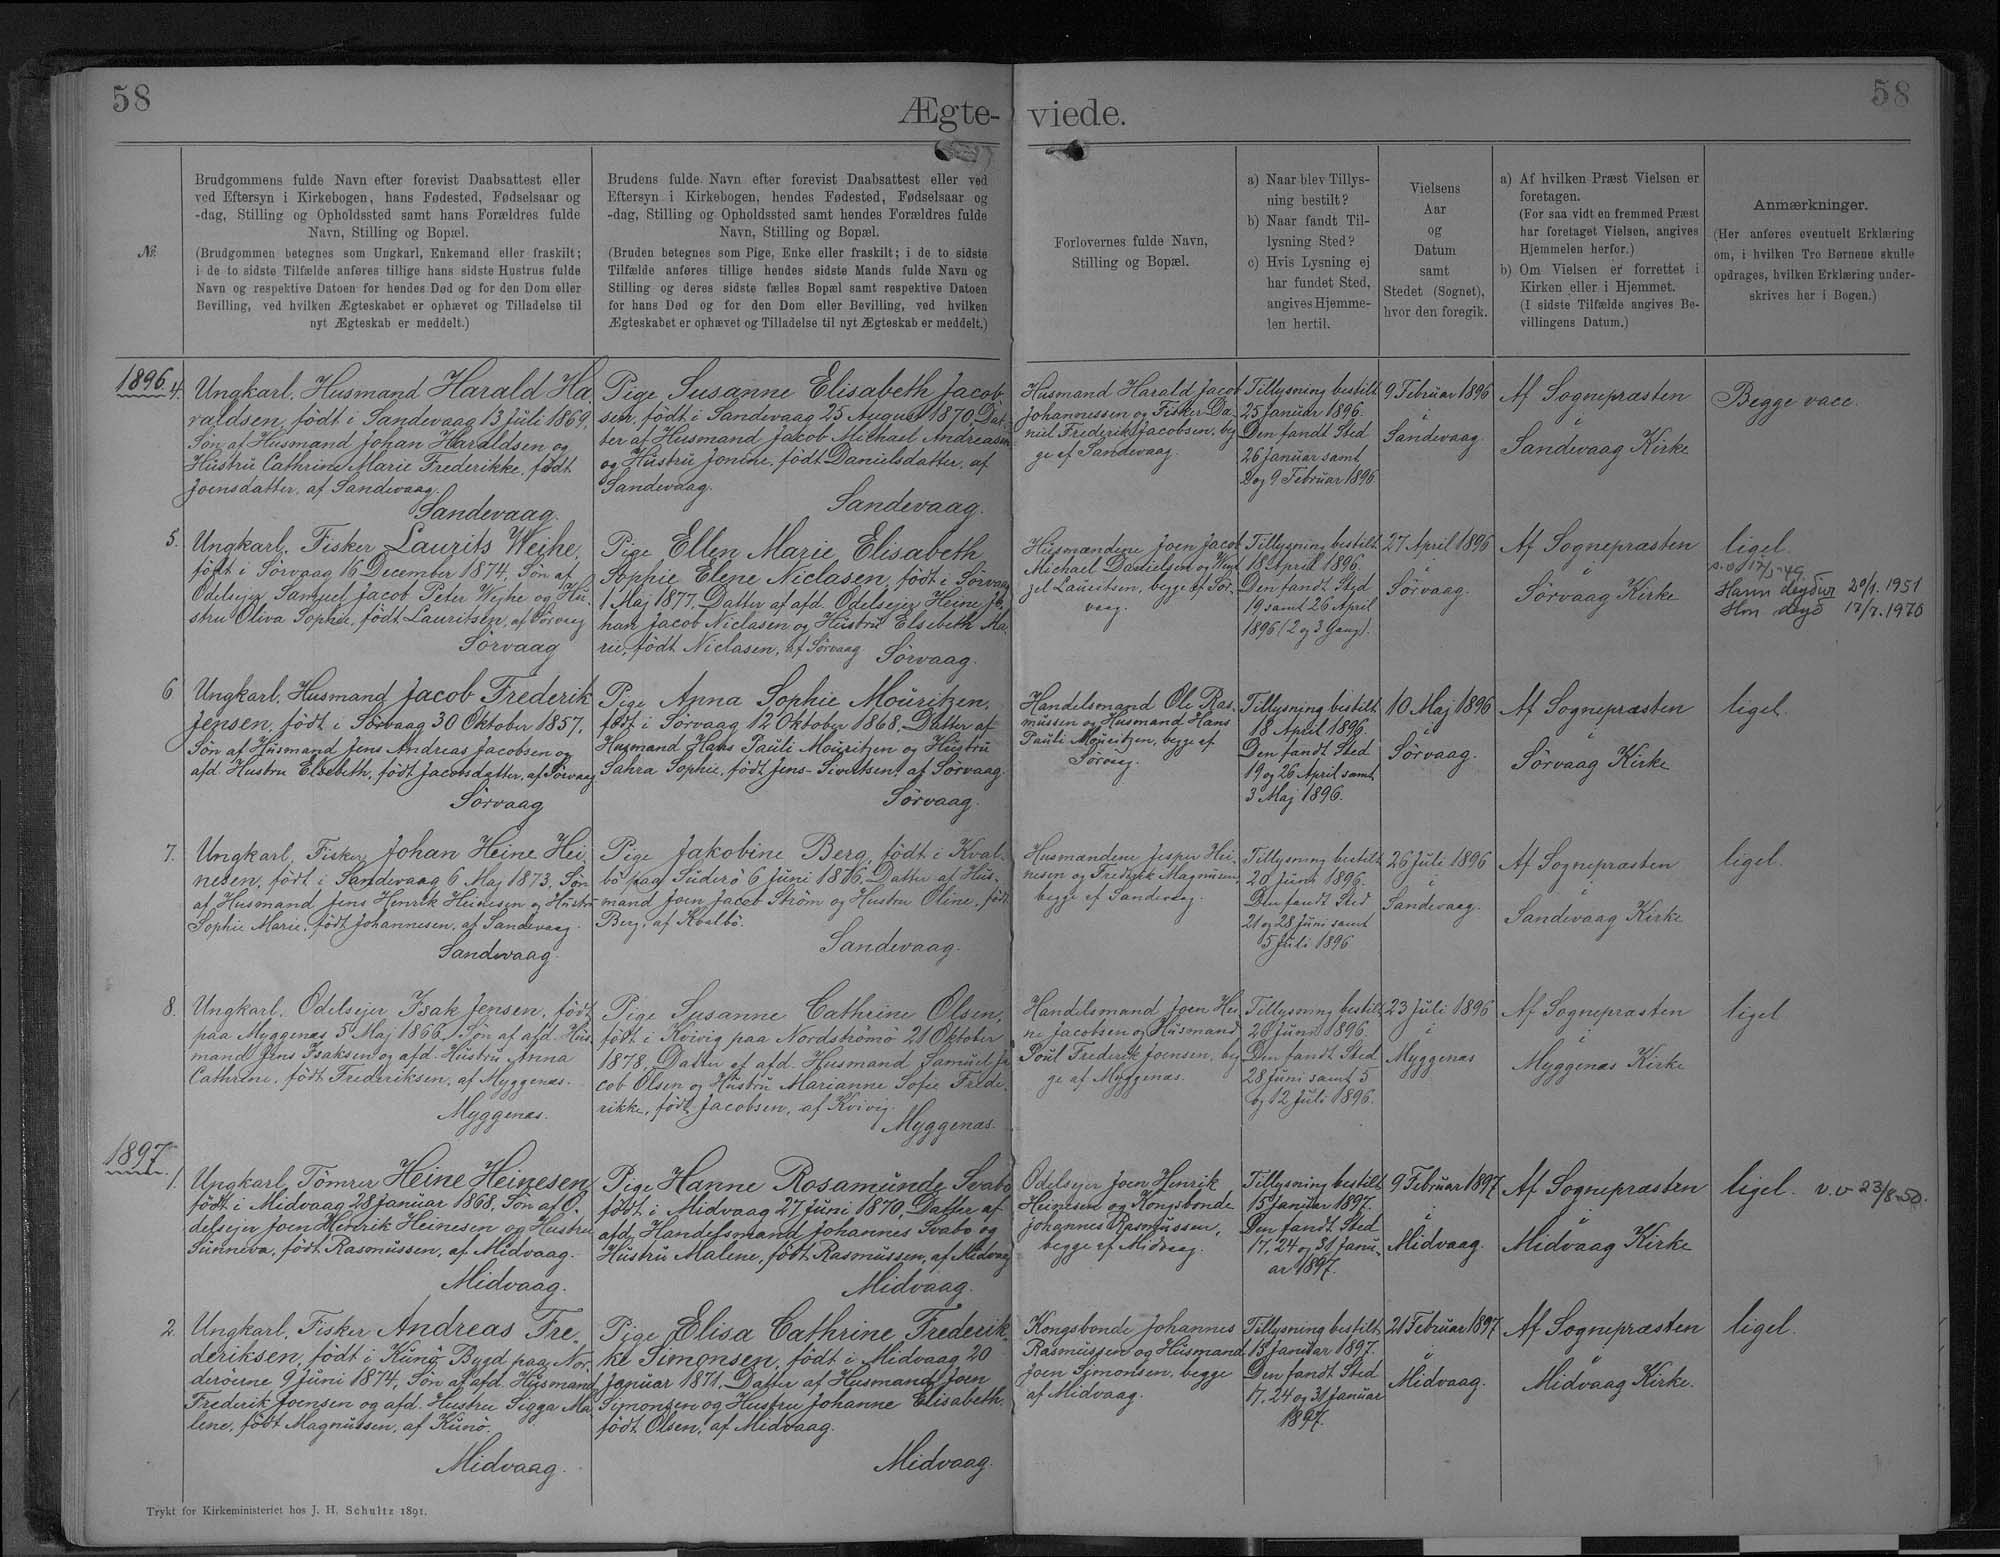 58
58
Ægte-
viede.
№
Brudgommens fulde Navn efter forevist Daabsattest eller
ved Eftersyn i Kirkebogen, hans Fødested, Fødselsaar og
-dag, Stilling og Opholdssted samt hans Forældres fulde
Navn, Stilling og Bopæl.
(Brudgommen betegnes som Ungkarl, Enkemand eller fraskilt;
i de to sidste Tilfælde anføres tillige hans sidste Hustrus fulde
Navn og respektive Datoen for hendes Død og for den Dom eller
Bevilling, ved hvilken Ægteskabet er ophævet og Tilladelse til
nyt Ægteskab er meddelt.)
Brudens fulde Navn efter forevist Daabsattest eller ved
Eftersyn i Kirkebogen, hendes Fødested, Fødselsaar og
-dag, Stilling og Opholdssted samt hendes Forældres fulde
Navn, Stilling og Bopæl.
(Bruden betegnes som Pige, Enke eller fraskilt; i de to sidste
Tilfælde anføres tillige hendes sidste Mands fulde Navn og
Stilling og deres sidste fælles Bopæl samt respektive Datoen
for hans Død og for den Dom eller Bevilling, ved hvilken
Ægteskabet er ophævet og Tilladelse til nyt Ægteskab er meddelt.)
Forlovernes fulde Navn,
Stilling og Bopæl.
a) Naar blev Tillys-
ning bestilt?
b) Naar fandt Til-
lysning Sted?
c) Hvis Lysning ej
har fundet Sted,
angives Hjemme-
len hertil.
Vielsens
Aar
og
Datum
samt
Stedet (Sognet),
hvor den foregik.
a) Af hvilken Præst Vielsen er
foretagen.
(For saa vidt en fremmed Præst
har foretaget Vielsen, angives
Hjemmelen herfor.)
b) Om Vielsen er forrettet i
Kirken eller i Hjemmet.
(I sidste Tilfælde angives Be-
villingens Datum.)
Anmærkninger.
(Her anføres eventuelt Erklæring
om, i hvilken Tro Børnene skulle
opdrages, hvilken Erklæring under-
skrives her i Bogen.)
1896.
4.
Ungkarl, Husmand Harald Ha-
raldsen, født i Sandevaag 13 Juli 1869,
Søn af Husmand Johan Haraldsen og
Hustru Cathrine Marie Frederikke, født
Joensdatter, af Sandevaag.
Sandevaag.
Pige Susanne Elisabeth Jacob-
sen, født i Sandevaag 25 August 1870, Dat-
ter af Husmand Jacob Michael Andreasen
og Hustru Jonine, født Danielsdatter, af
Sandevaag.
Sandevaag.
Husmand Harald Jacob
Johannessen og Fisker Da-
niel Frederik Jacobsen, beg-
ge af Sandevaag.
Tillysning bestilt
25 Januar 1896.
Den fandt Sted
26 Januar samt
2 og 9 Februar 1896.
9 Februar 1896
i
Sandevaag.
Af Sognepræsten
i
Sandevaag Kirke
Begge vacc.
5.
Ungkarl, Fisker Laurits Wejhe,
født i Sörvaag 16 December 1874, Søn af
Odelsejer Samuel Jacob Peter Wejhe og Hu-
stru Oliva Sophie, født Lauritsen, af Sörvaag
Sörvaag
Pige Ellen Marie Elisabeth
Sophie Elene Niclasen, født i Sörvaag
1 Maj 1877, Datter af afd. Odelsejer Heine Jo-
han Jacob Niclasen og Hustru Elsebeth Ma-
rie, født Niclasen, af Sörvaag.
Sörvaag.
Husmændene Joen Jacob
Michael Danielsen og
Lauritsen, begge af Sör-
vaag.
Tillysning bestilt
18 April 1896.
Den fandt Sted
19 samt 26 April
1896 (2 og 3 Gang).
27 April 1896
i
Sörvaag.
Af Sognepræsten
i
Sörvaag Kirke
ligel.
Hann deyður 20/1. 1951
Hon deyð 17/7. 1970
6
Ungkarl, Husmand Jacob Frederik
Jensen, født i Sörvaag 30 Oktober 1857,
Søn af Husmand Jens Andreas Jacobsen og
afd. Hustru Elsebeth, født Jacobsdatter, af Sörvaag
Sörvaag
Pige Anna Sophie Mouritzen,
født i Sörvaag 12 Oktober 1868, Datter af
Husmand Hans Pauli Mouritzen og Hustru
Sahra Sophie, født Jens-Sivertsen, af Sörvaag.
Sörvaag.
Handelsmand Ole Ras-
mussen og Husmand Hans
Pauli Mouritzen, begge af
Sörvaag.
Tillysning bestilt
18 April 1896.
Den fandt Sted
19 og 26 April samt
3 Maj 1896.
10 Maj 1896
i
Sörvaag.
Af Sognepræsten
i
Sörvaag Kirke
ligel.
7.
Ungkarl, Fisker Johan Heine Hei-
nesen, født i Sandevaag 6 Maj 1873, Søn
af Husmand Jens Henrik Heinesen og Hustru
Sophie Marie, født Johannesen, af Sandevaag.
Sandevaag.
Pige Jakobine Berg, født i Kval-
bö paa Suderö 6 Juni 1876, Datter af Hus-
mand Joen Jacob Ström og Hustru Oline, født
Berg, af Kvalbö.
Sandevaag.
Husmændene Jesper Hei-
nesen og Fredrik Magnusen,
begge af Sandevaag.
Tillysning bestilt
20 Juni 1896.
Den fandt Sted
21 og 28 Juni samt
5 Juli 1896
26 Juli 1896
i
Sandevaag.
Af Sognepræsten
i
Sandevaag Kirke
ligel.
8.
Ungkarl, Odelsejer Isak Jensen, født
paa Myggenæs 5 Maj 1866, Søn af afd. Hus-
mand Jens Isaksen og afd. Hustru Anna
Cathrine, født Frederiksen, af Myggenæs.
Myggenæs.
Pige Susanne Cathrine Olsen,
født i Kvivig paa Nordströmö 21 Oktober
1878, Datter af afd. Husmand Samuel Ja-
cob Olsen og Hustru Marianne Sofie Frede-
rikke, født Jacobsen, af Kvivig.
Myggenæs.
Handelsmand Joen Hei-
ne Jacobsen og Husmand
Poul Frederik Joensen, beg-
ge af Myggenæs.
Tillysning bestilt
20 Juni 1896.
Den fandt Sted
28 Juni samt 5
og 12 Juli 1896.
23 Juli 1896
i
Myggenæs
Af Sognepræsten
i
Myggenæs Kirke
ligel
1897.
1.
Ungkarl, Tömrer Heine Heinesen,
født i Midvaag 28 Januar 1868, Søn af O-
delsejer Joen Henrik Heinesen og Hustru
Sunneva, født Rasmussen, af Midvaag.
Midvaag.
Pige Hanne Rosamunde Svabo
født i Midvaag 27 Juni 1870, Datter af
afd. Handelsmand Johannes Svabo og
Hustru Malene, født Rasmussen, af Midvaag
Midvaag.
Odelsejer Joen Henrik
Heinesen og Kongsbonde
Johannes Rasmussen,
begge af Midvaag.
Tillysning bestilt
15 Januar 1897.
Den fandt Sted
17, 24 og 31 Janu-
ar 1897.
9 Februar 1897
i
Midvaag.
Af Sognepræsten
i
Midvaag Kirke
ligel. v.v 23/8-50.
2.
Ungkarl, Fisker Andreas Fre-
deriksen, født i Kunö Bygd paa Nor-
deröerne 9 Juni 1874, Søn af afd. Husmand
Frederik Joensen og afd. Hustru Sigga Ma-
lene, født Magnussen, af Kunö.
Midvaag.
Pige Elisa Cathrine Frederik-
ke Simonsen, født i Midvaag 20
Januar 1871, Datter af Husmand Joen
Simonsen og Hustru Johanne Elisabeth,
født Olsen, af Midvaag.
Midvaag.
Kongsbonde Johannes
Rasmussen og Husmand
Joen Simonsen, begge
af Midvaag.
Tillysning bestilt
15 Januar 1897.
Den fandt Sted
17, 24 og 31 Januar
1897.
21 Februar 1897
i
Midvaag.
Af Sognepræsten
i
Midvaag Kirke.
ligel.
Trykt for Kirkeministeriet hos J. H. Schultz 1891.